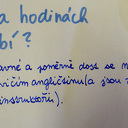 a hodinách
bí?
avné a poměrně dost se n
vičím angličtinu(a jsou
instruktoři).